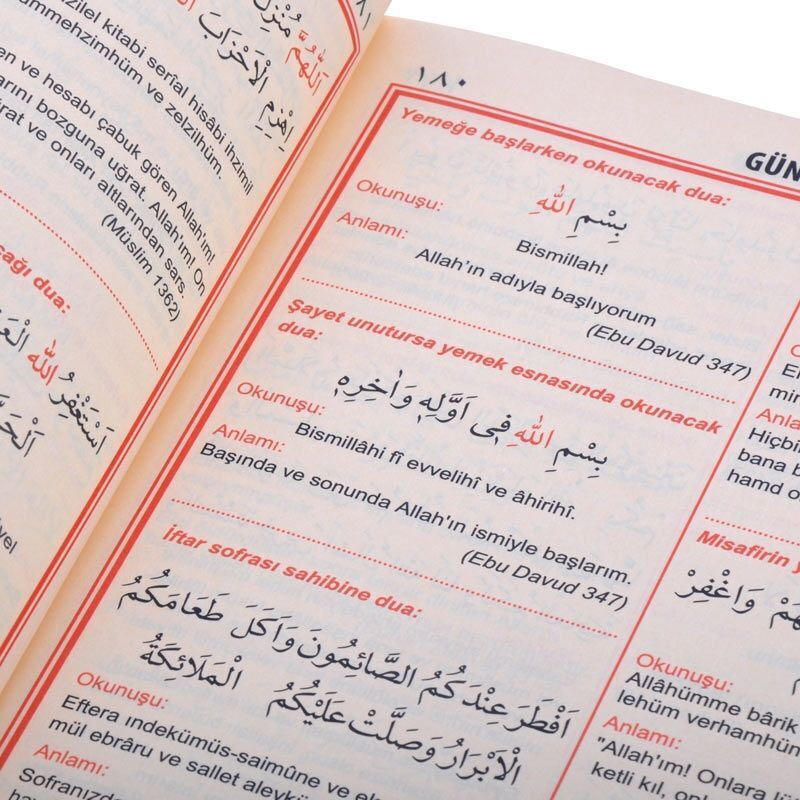 ٨١
اَللّٰهُمَّ مُنْزِلَ
اِهْزِمِ الْاَحْزَابَ
zilel kitabi serîal hisâbi ihzimil
ummehzimhüm ve zelzilhüm.
en ve hesabı çabuk gören Allah'ım!
arını bozguna uğrat. Allah'ım! On
ğrat ve onları altlarından sars.
(Müslim 1362)
cağı dua:
اَسْتَغْفِرُ اللّٰهَ الْعَ
اَلْحَ
iyel
١٨٠
GÜN
Yemeğe başlarken okunacak dua:
بِسْمِ اللّٰهِ
Okunuşu:
Bismillah!
Anlamı:
Allah'ın adıyla başlıyorum
(Ebu Davud 347)
Şayet unutursa yemek esnasında okunacak
dua:
بِسْمِ اللّٰهِ فِى اَوَّلِهِ وَاٰخِرِهِ
Okunuşu:
Bismillâhi fî evvelihî ve âhirihî.
Anlamı:
Başında ve sonunda Allah'ın ismiyle başlarım.
(Ebu Davud 347)
İftar sofrası sahibine dua:
اَفْطَرَ عِنْدَكُمُ الصَّائِمُونَ وَاَكَلَ طَعَامَكُمُ
الْاَبْرَارُ وَصَلَّتْ عَلَيْكُمُ الْمَلَائِكَةُ
Okunuşu:
Eftera ındekümüs-saimûne ve e
mül ebrâru ve sallet aleykü
Anlamı:
Sofranızd
O
El
min
Anla
Hiçbi
bana b
hamd o
Misafirin y
هُمْ وَاغْفِرْ
Okunuşu:
Allâhümme bârik
lehüm verhamhün
Anlamı:
"Allah'ım! Onlara
ketli kıl, onl